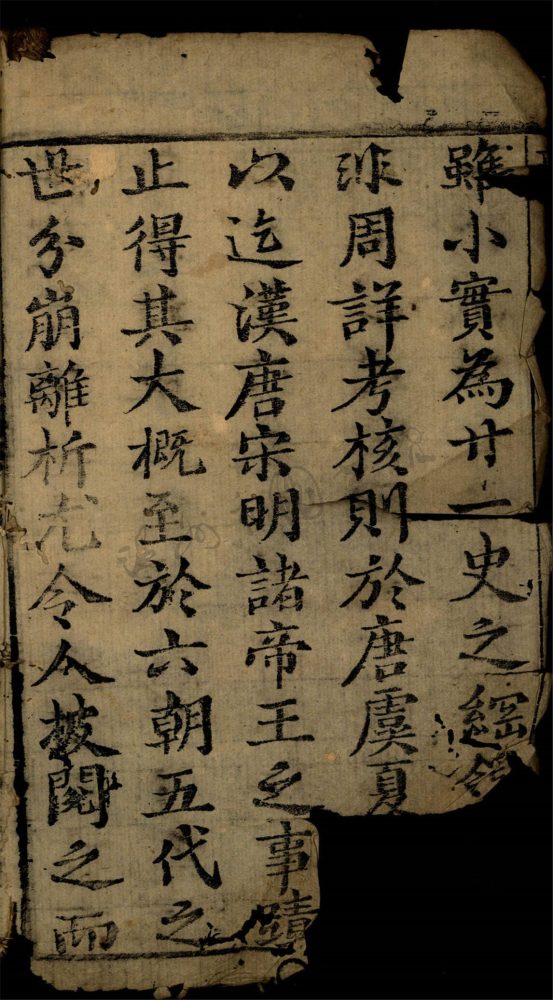 雖小實為廿一史之綱領
非周詳考核則於唐虞夏
以迄漢唐宋明諸帝王之事蹟
止得其大概至於六朝五代之
世分崩離析尤令人披閱之而